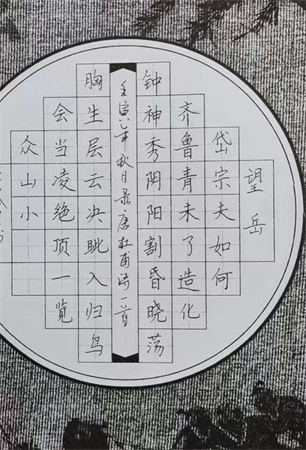 望岳
岱宗夫如何
齐鲁青未了造化
钟神秀阴阳割昏晓荡
壬寅年秋日录唐杜甫诗一首
胸生层云决眺入归鸟
会当凌绝顶一览
众山小